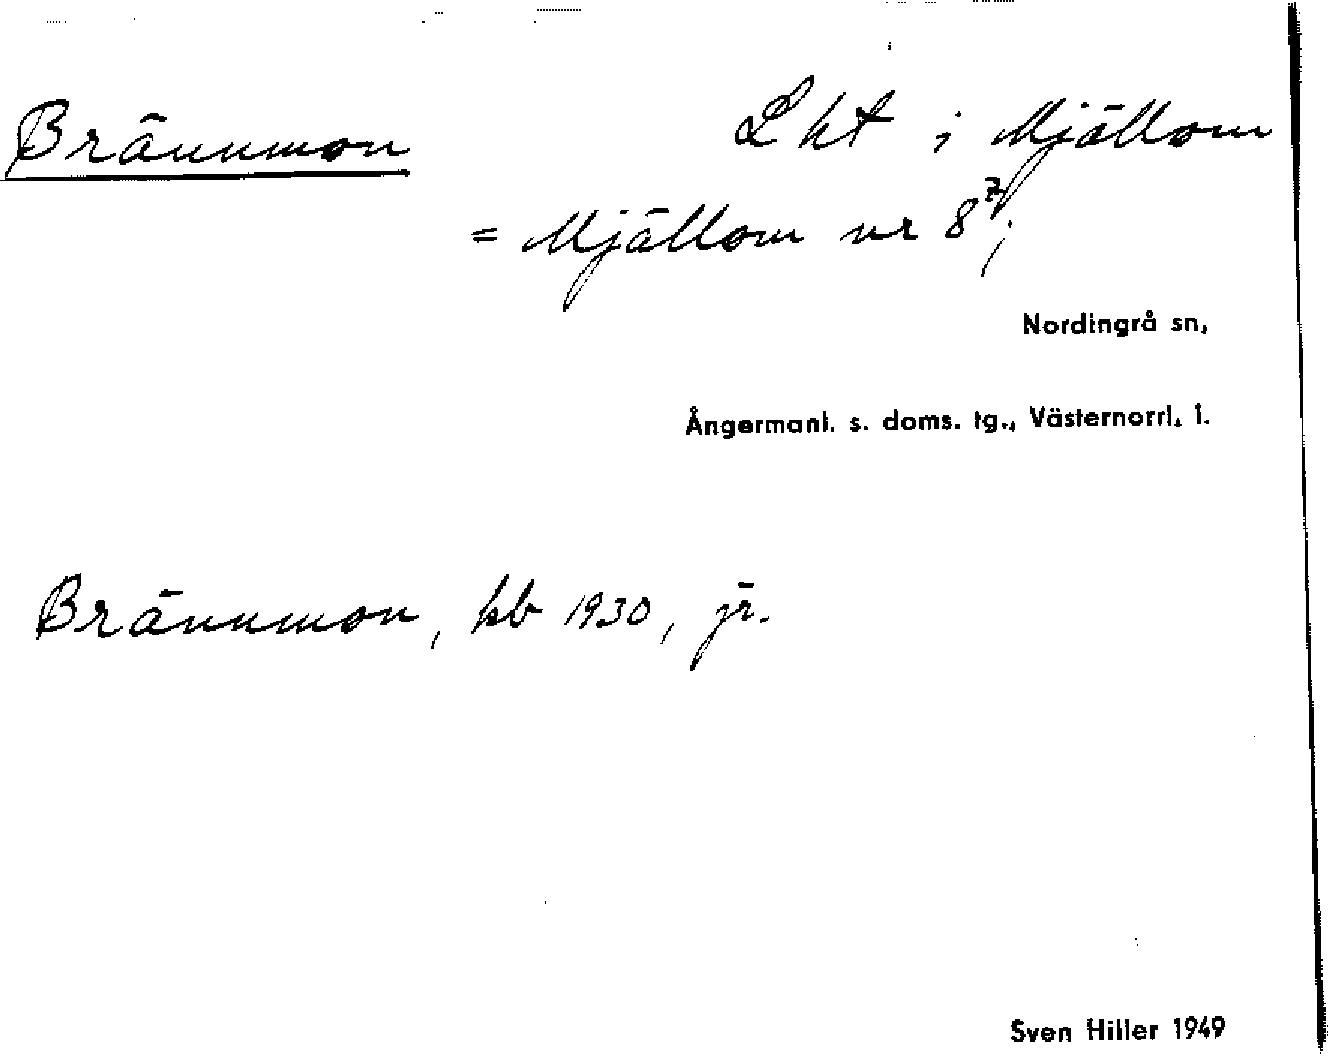 Brännmon Lht i Mjällom
= Mjällom nr 8⁷;
Nordingrå sn,
Ångermanl. s. doms. tg., Västernorrl. l.
Brännmon, kb 1930, jr.
Sven Hiller 1949